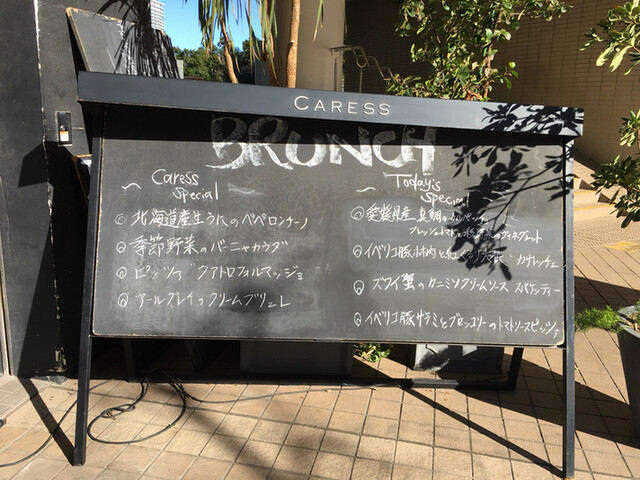 CARESS
BRUNCH
Caress
Special
北海道産生うにのペペロンチーノ
季節野菜のバーニャカウダ
ピッツァ クアトロフォルマッジョ
アールグレイのクリームブリュレ
Today's
Special
愛媛県産 真鯛のカルパッチョ
フレッシュトマト のヴィネグレット
イベリコ豚 カサレッチェ
ズワイ蟹のカニミソクリームソース スパゲッティー
イベリコ豚サラミとブロッコリーのトマトソースピッツァ